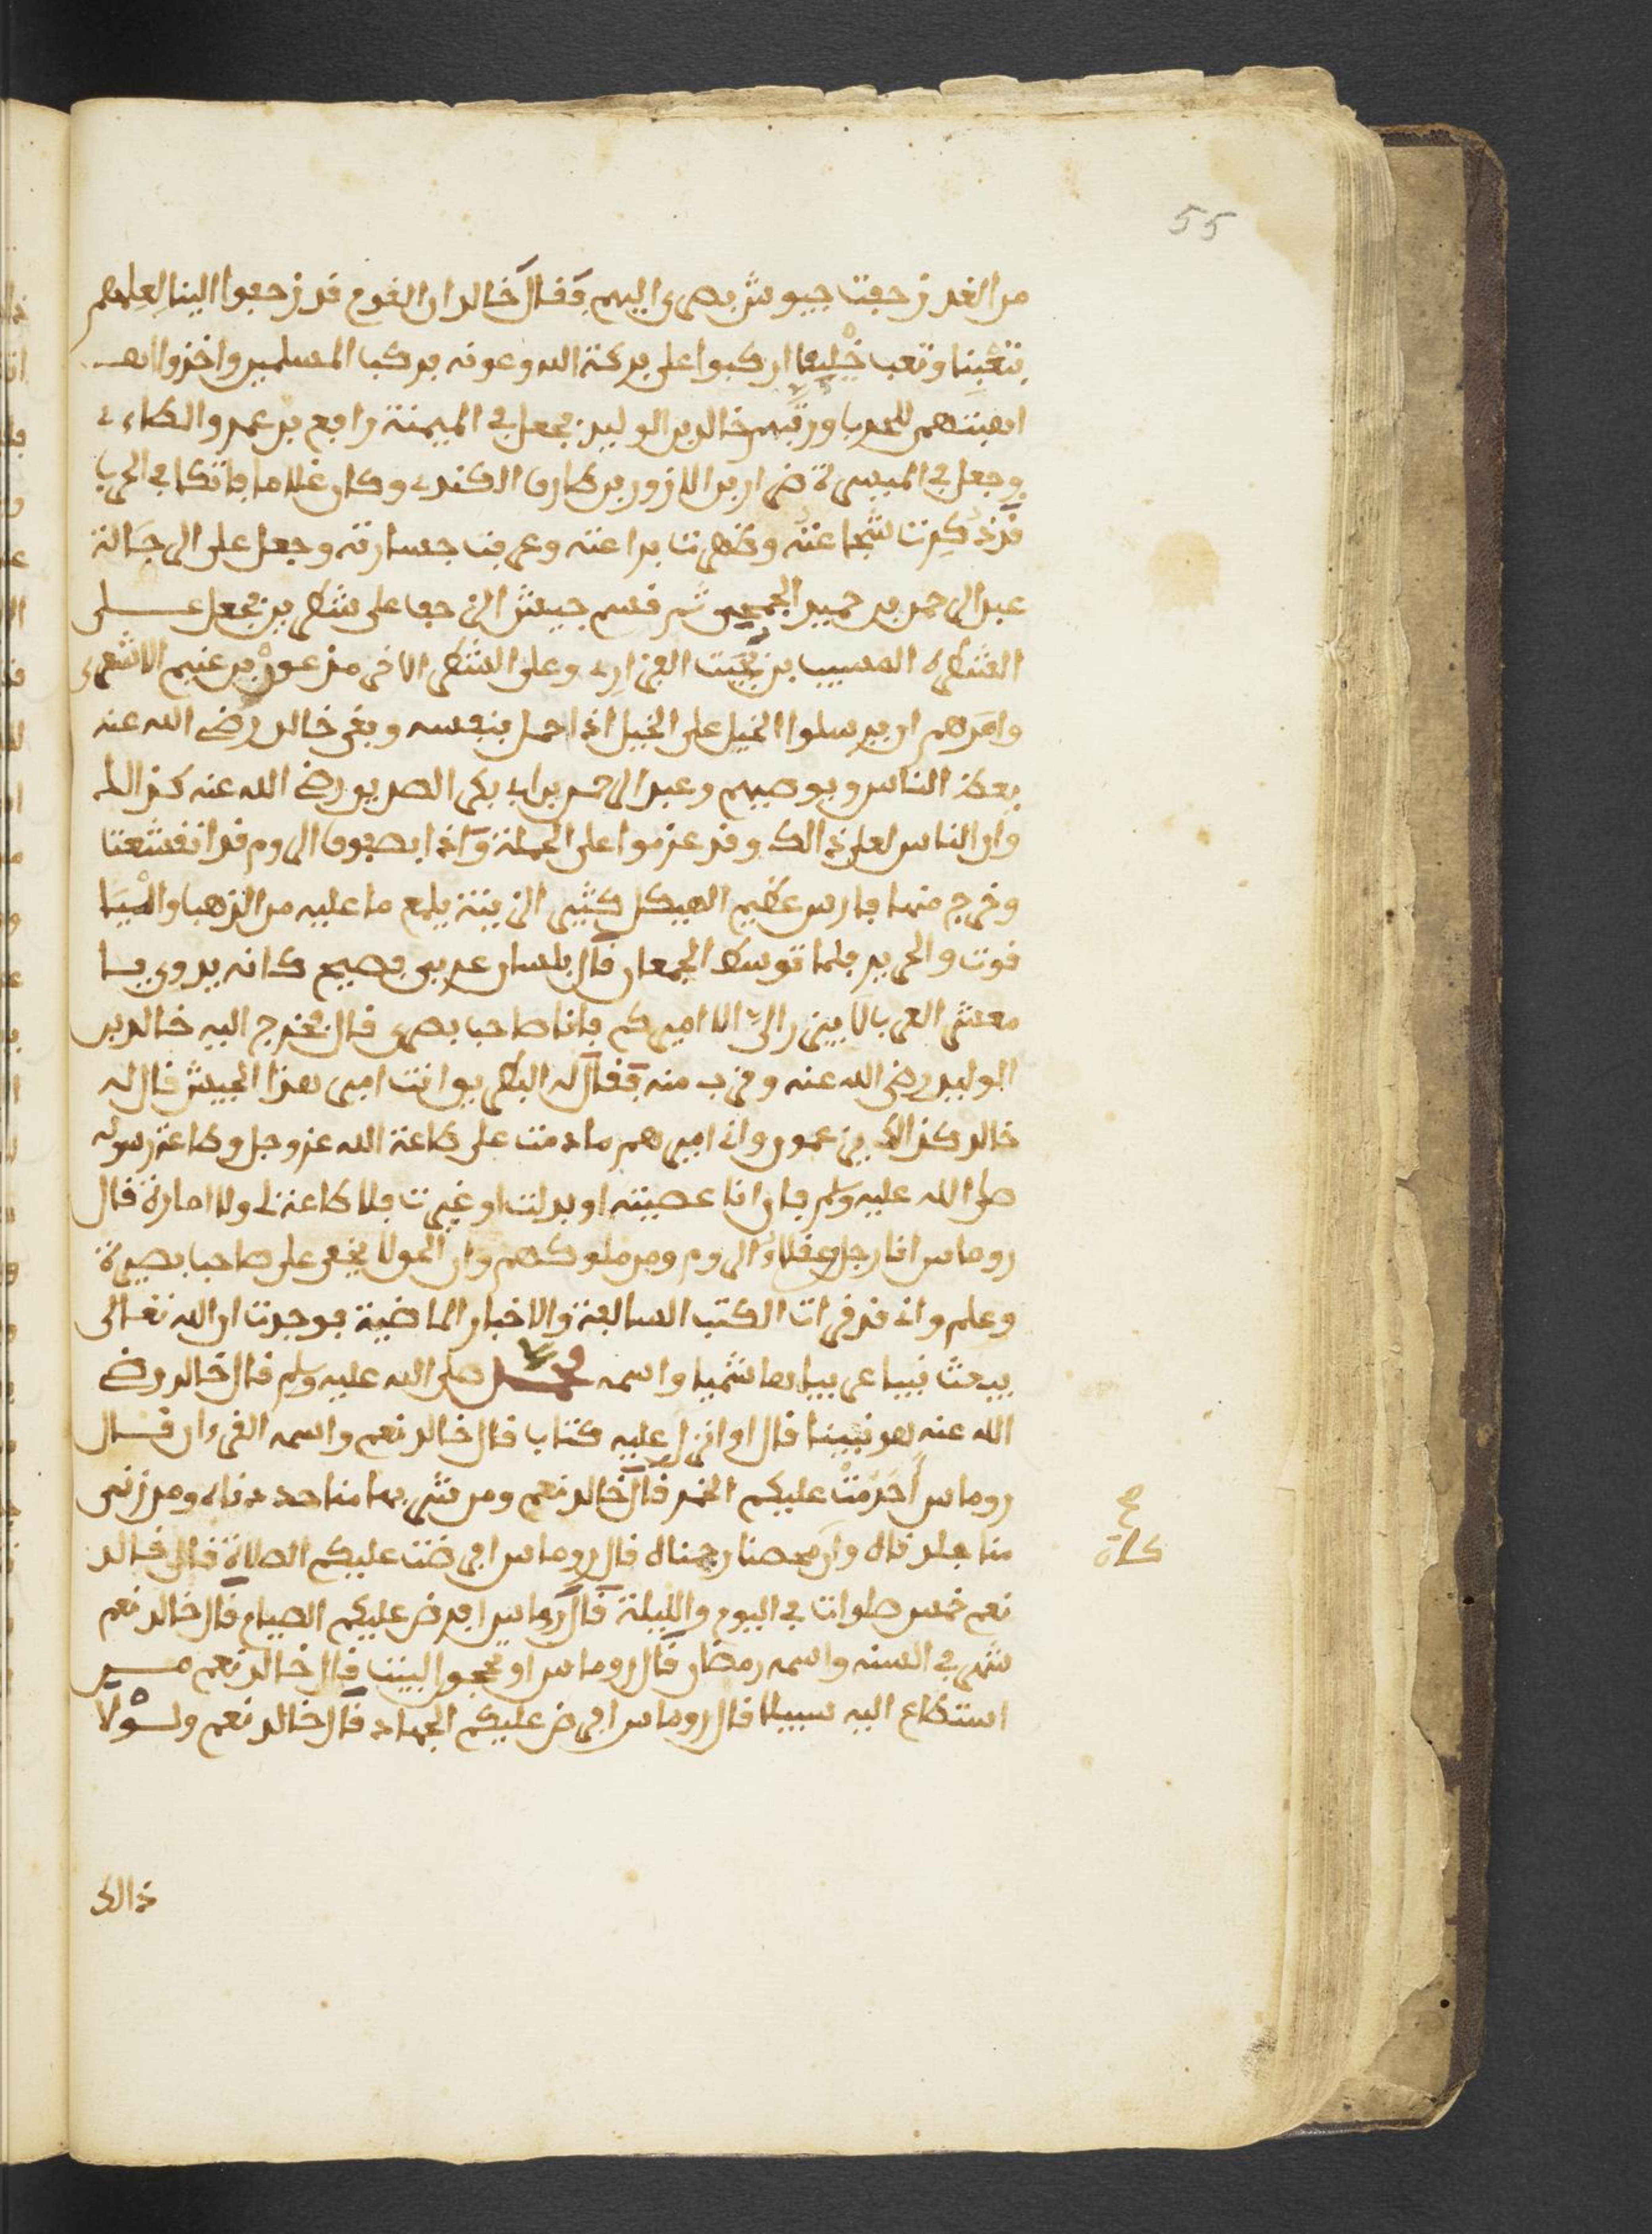 55
من الغد زحفت جيوش بصرى اليهم فقال خالد ان القوم قد زحفوا الينا لعلمهم
بتعبنا وتعب خيلنا اركبوا على بركة الله وعونه فركب المسلمين واخذوا اهـ
اهبتهم للحرب ورتبهم خالد بن الوليد فجعل في الميمنة رافع بن عمرو الطاءي
وجعل في الميسرة ضرار بن الازور بن طارق الكندي وكان غلاما فاتكا في الحرب
قد ذكرت شجاعته وظهرت براعته وعرفت جسارته وجعل على الرجالة
عبد الرحمن بن حميد الجمحي ثم قسم جيش الزحف على شطرين فجعل علـى
الشطر المسيب بن نجيت الفزاري وعلى الشطر الاخر مذعور بن غنيم الاشعري
وامرهم ان يرسلوا الخيل على الخيل اذا حمل بنفسه وبقي خالد رضي الله عنه
يعظ الناس ويوصيهم وعبد الرحمن بن ابي بكر الصديق رضي الله عنه كذالك
وان الناس لعلى ذالك وقد عزموا على الحملة واذا بصفوف الروم قد انقشعت
وخرج منها فارس عظيم الهيكل كثير الزينة يلمع ما عليه من الذهب واليا
قوت والحرير فلما توسط الجمعان قال بلسان عربي فصيح كانه بدوي يـا
معشر العرب لا يبرز الي الا اميركم فانا صاحب بصرى قال فخرج اليه خالد بن
الوليد رضي الله عنه وقرب منه فقال له البطريق انت امير هذا الجيش قال له
خالد كذالك يزعمون واني اميرهم ما دمت على طاعة الله عز وجل وطاعة رسوله
صلى الله عليه وسلم فان انا عصيته او بدلت او غيرت فلا طاعة لي ولا امارة قال
روماس انا رجل من عقلاء الروم ومن ملوكهم وان الحق لا يخفى على صاحب بصيرة
وعلم واني قد قرات الكتب السالفة والاخبار الماضية فوجدت ان الله تعالى
يبعث نبيا عربيا هاشميا واسمه محمد صلى الله عليه وسلم قال خالد رضي
الله عنه هو نبينا قال او انزل عليه كتاب قال خالد نعم واسمه القرءان قـال
روماس احرمت عليكم الخمر قال خالد نعم ومن شربها منا حددناه ومن زنى
منا جلدناه وان محصنا رجمناه قال روماس افرضت عليكم الصلاة قال خالد
نعم خمس صلوات في اليوم والليلة قال روماس افرض عليكم الصيام قال خالد نعم
شهر في السنه واسمه رمضان قال روماس او تحجوا البيت قال خالد نعم مـن
استطاع اليه سبيلا قال روماس افرض عليكم الجهاد قال خالد نعم ولـولا
ذالك